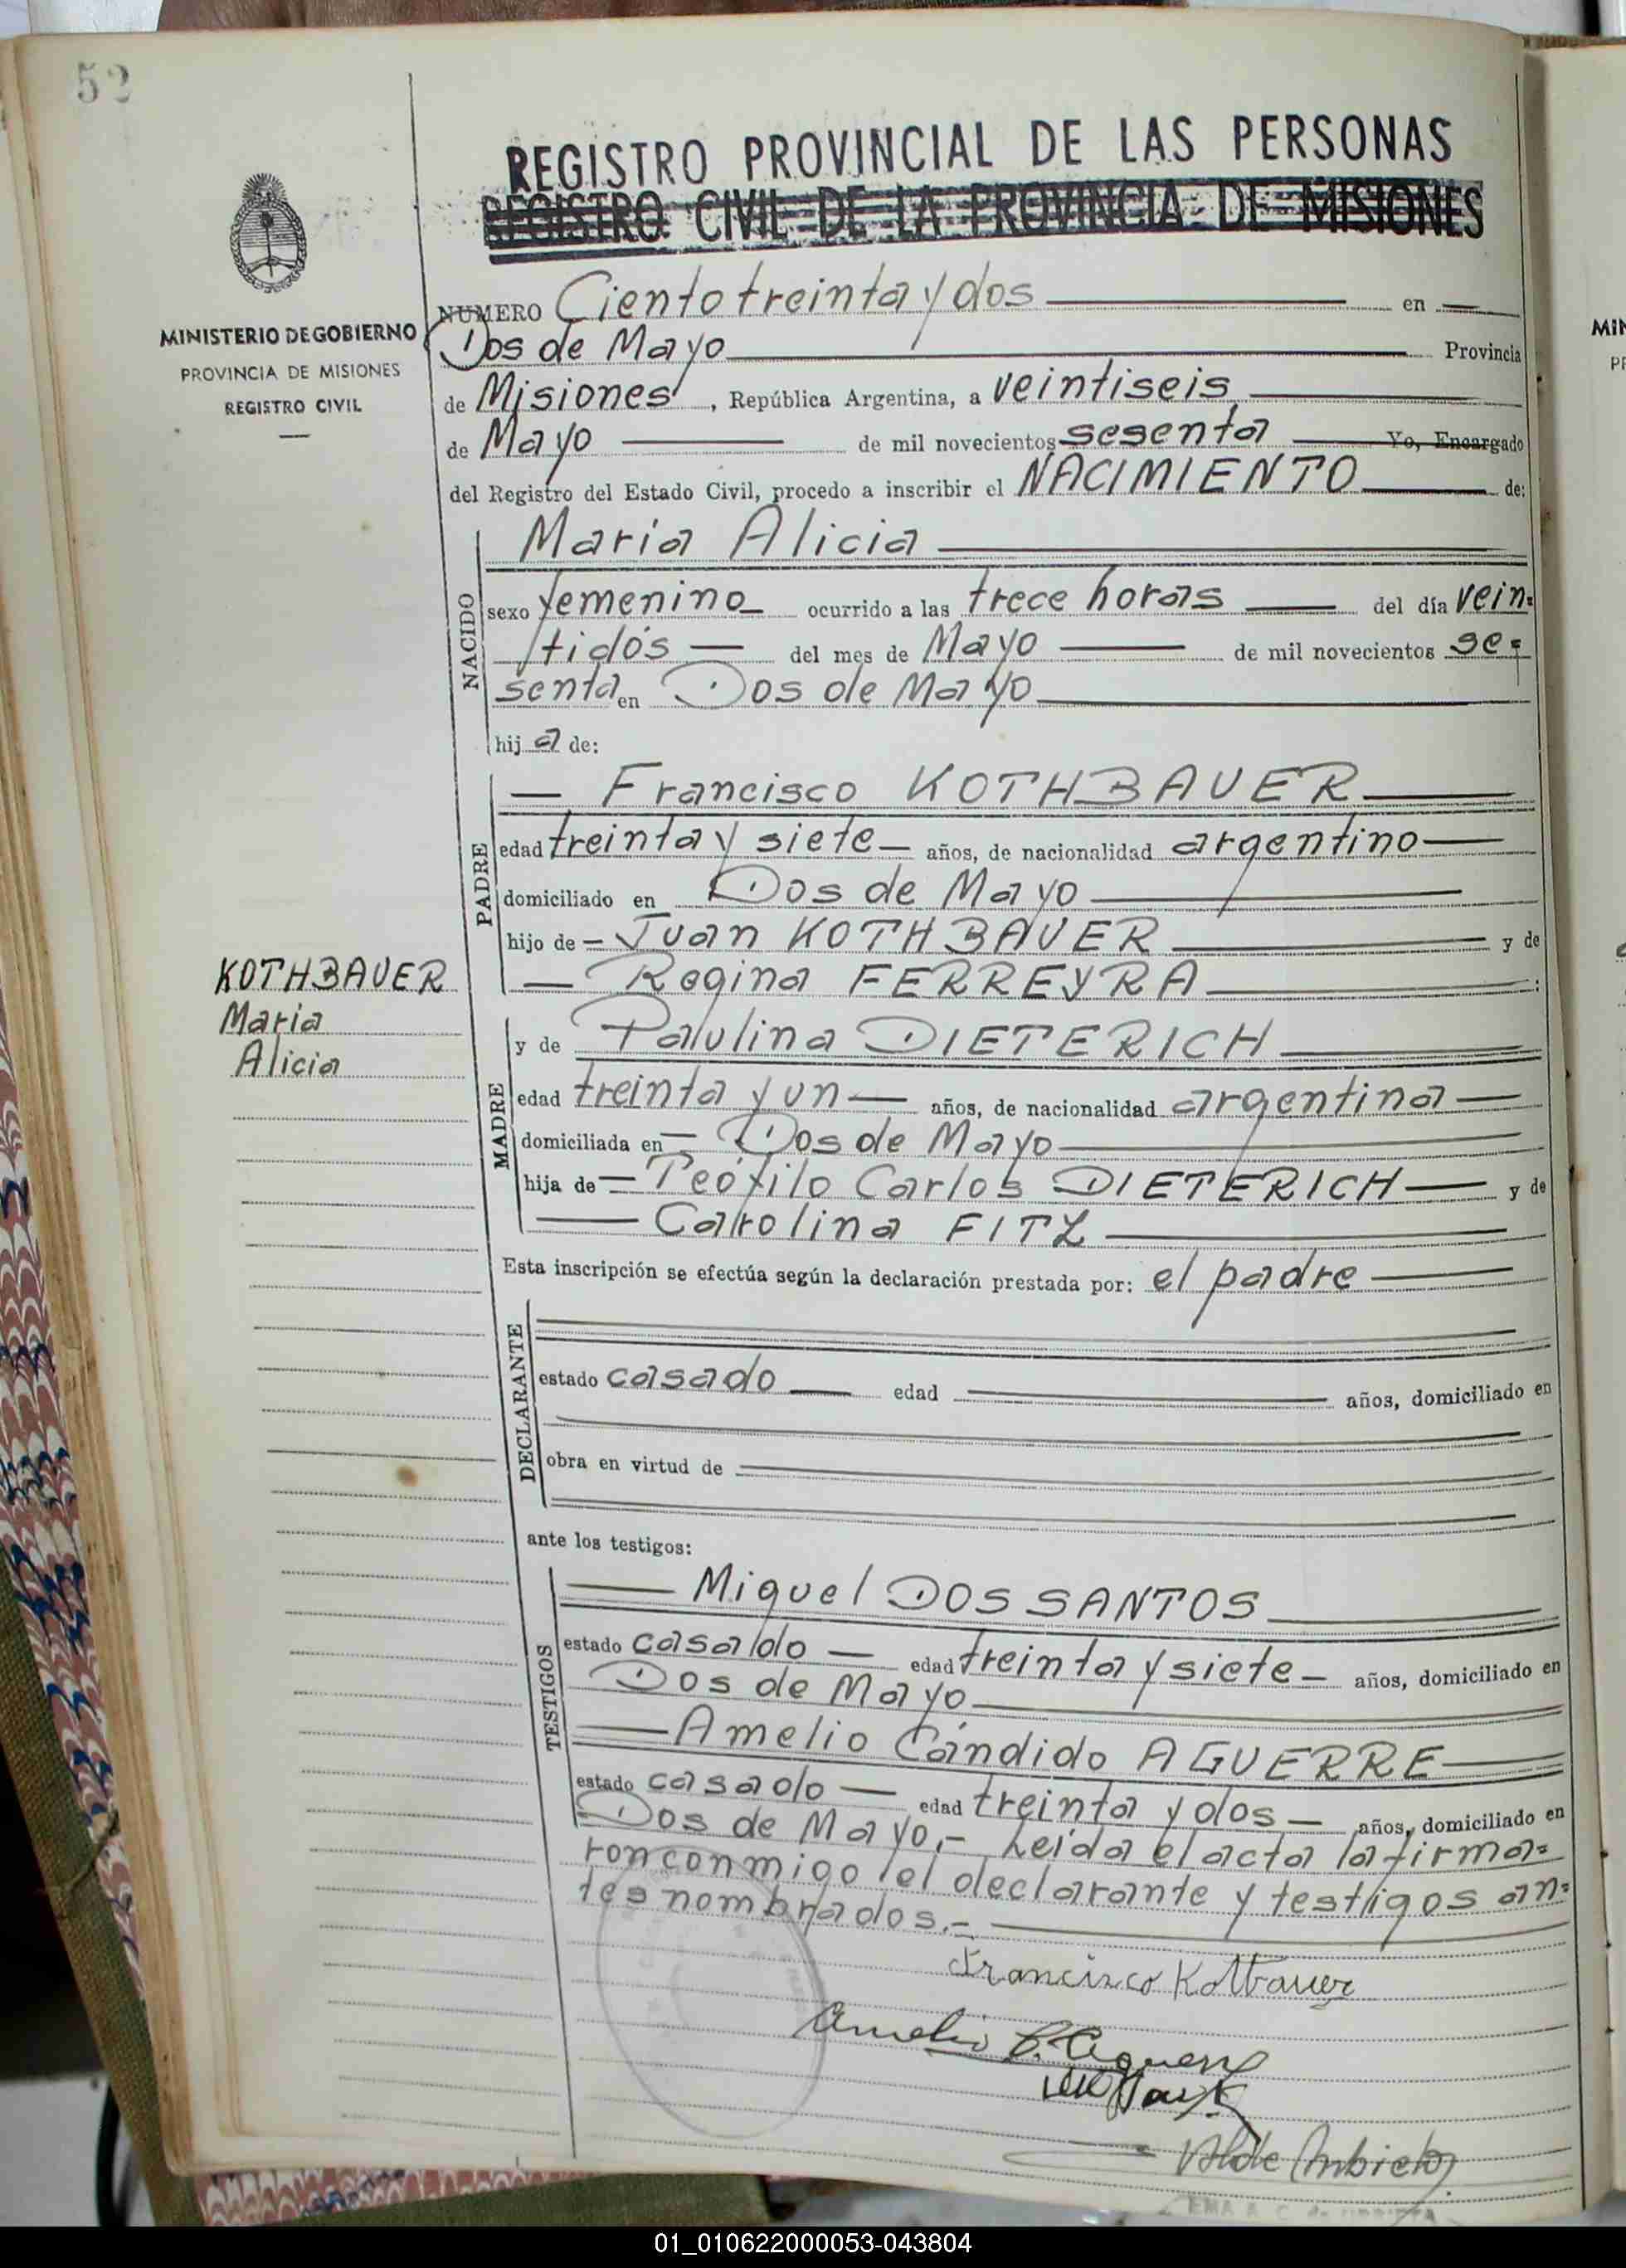 52
REGISTRO PROVINCIAL DE LAS PERSONAS
REGISTRO CIVIL DE LA PROVINCIA DE MISIONES
MINISTERIO DE GOBIERNO
PROVINCIA DE MISIONES
REGISTRO CIVIL
NUMERO Ciento treinta y dos en
Dos de Mayo Provincia
de Misiones, República Argentina, a veintiseis
de Mayo de mil novecientos sesenta Yo, Encargado
del Registro del Estado Civil, procedo a inscribir el NACIMIENTO de:
NACIDO
María Alicia
sexo femenino ocurrido a las trece horas del día vein=
tidós del mes de Mayo de mil novecientos se=
senta en Dos de Mayo
hija de:
PADRE
— Francisco KOTHBAUER
edad treinta y siete — años, de nacionalidad argentino
domiciliado en Dos de Mayo
hijo de — Juan KOTHBAUER y de
— Regina FERREYRA :
KOTHBAUER
Maria
Alicia
MADRE
y de Paulina DIETERICH
edad treinta y un — años, de nacionalidad argentina
domiciliada en — Dos de Mayo
hija de — Teófilo Carlos DIETERICH — y de
— Carolina FITZ
Esta inscripción se efectúa según la declaración prestada por: el padre
DECLARANTE
estado casado edad años, domiciliado en
obra en virtud de
ante los testigos:
TESTIGOS
— Miguel DOS SANTOS
estado casado — edad treinta y siete — años, domiciliado en
Dos de Mayo
— Amelio Cándido AGUERRE
estado casado — edad treinta y dos — años, domiciliado en
Dos de Mayo.- Leída el acta la firma=
ron conmigo el declarante y testigos an=
tes nombrados.-
Francisco Kotbauer
Amelio C. Aguerre
01_010622000053-043804